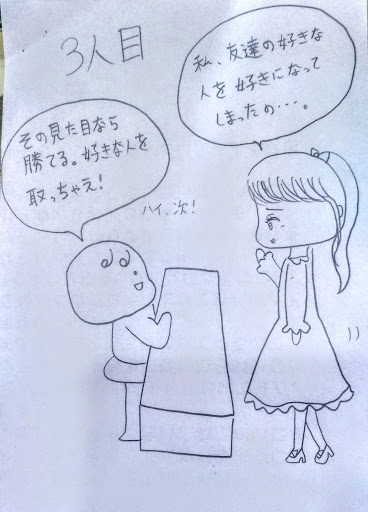 3人目
私、友達の好きな
人を好きになって
しまったの…。
その見た目なら
勝てる。好きな人を
取っちゃえ!
ハイ、次!